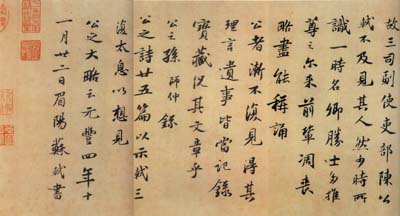 故三司副使吏部陳公
軾不及見其人然少時所
識一時名卿勝士多推
尊之尓來前輩凋喪
略盡能稱誦
公者漸不復見得其
理言遺事皆當記録
寶藏況其文章乎
公之孫師仲録
公之詩廿五篇以示軾三
復太息以想見
公之大略云元豐四年十
一月廿二日眉陽蘇軾書